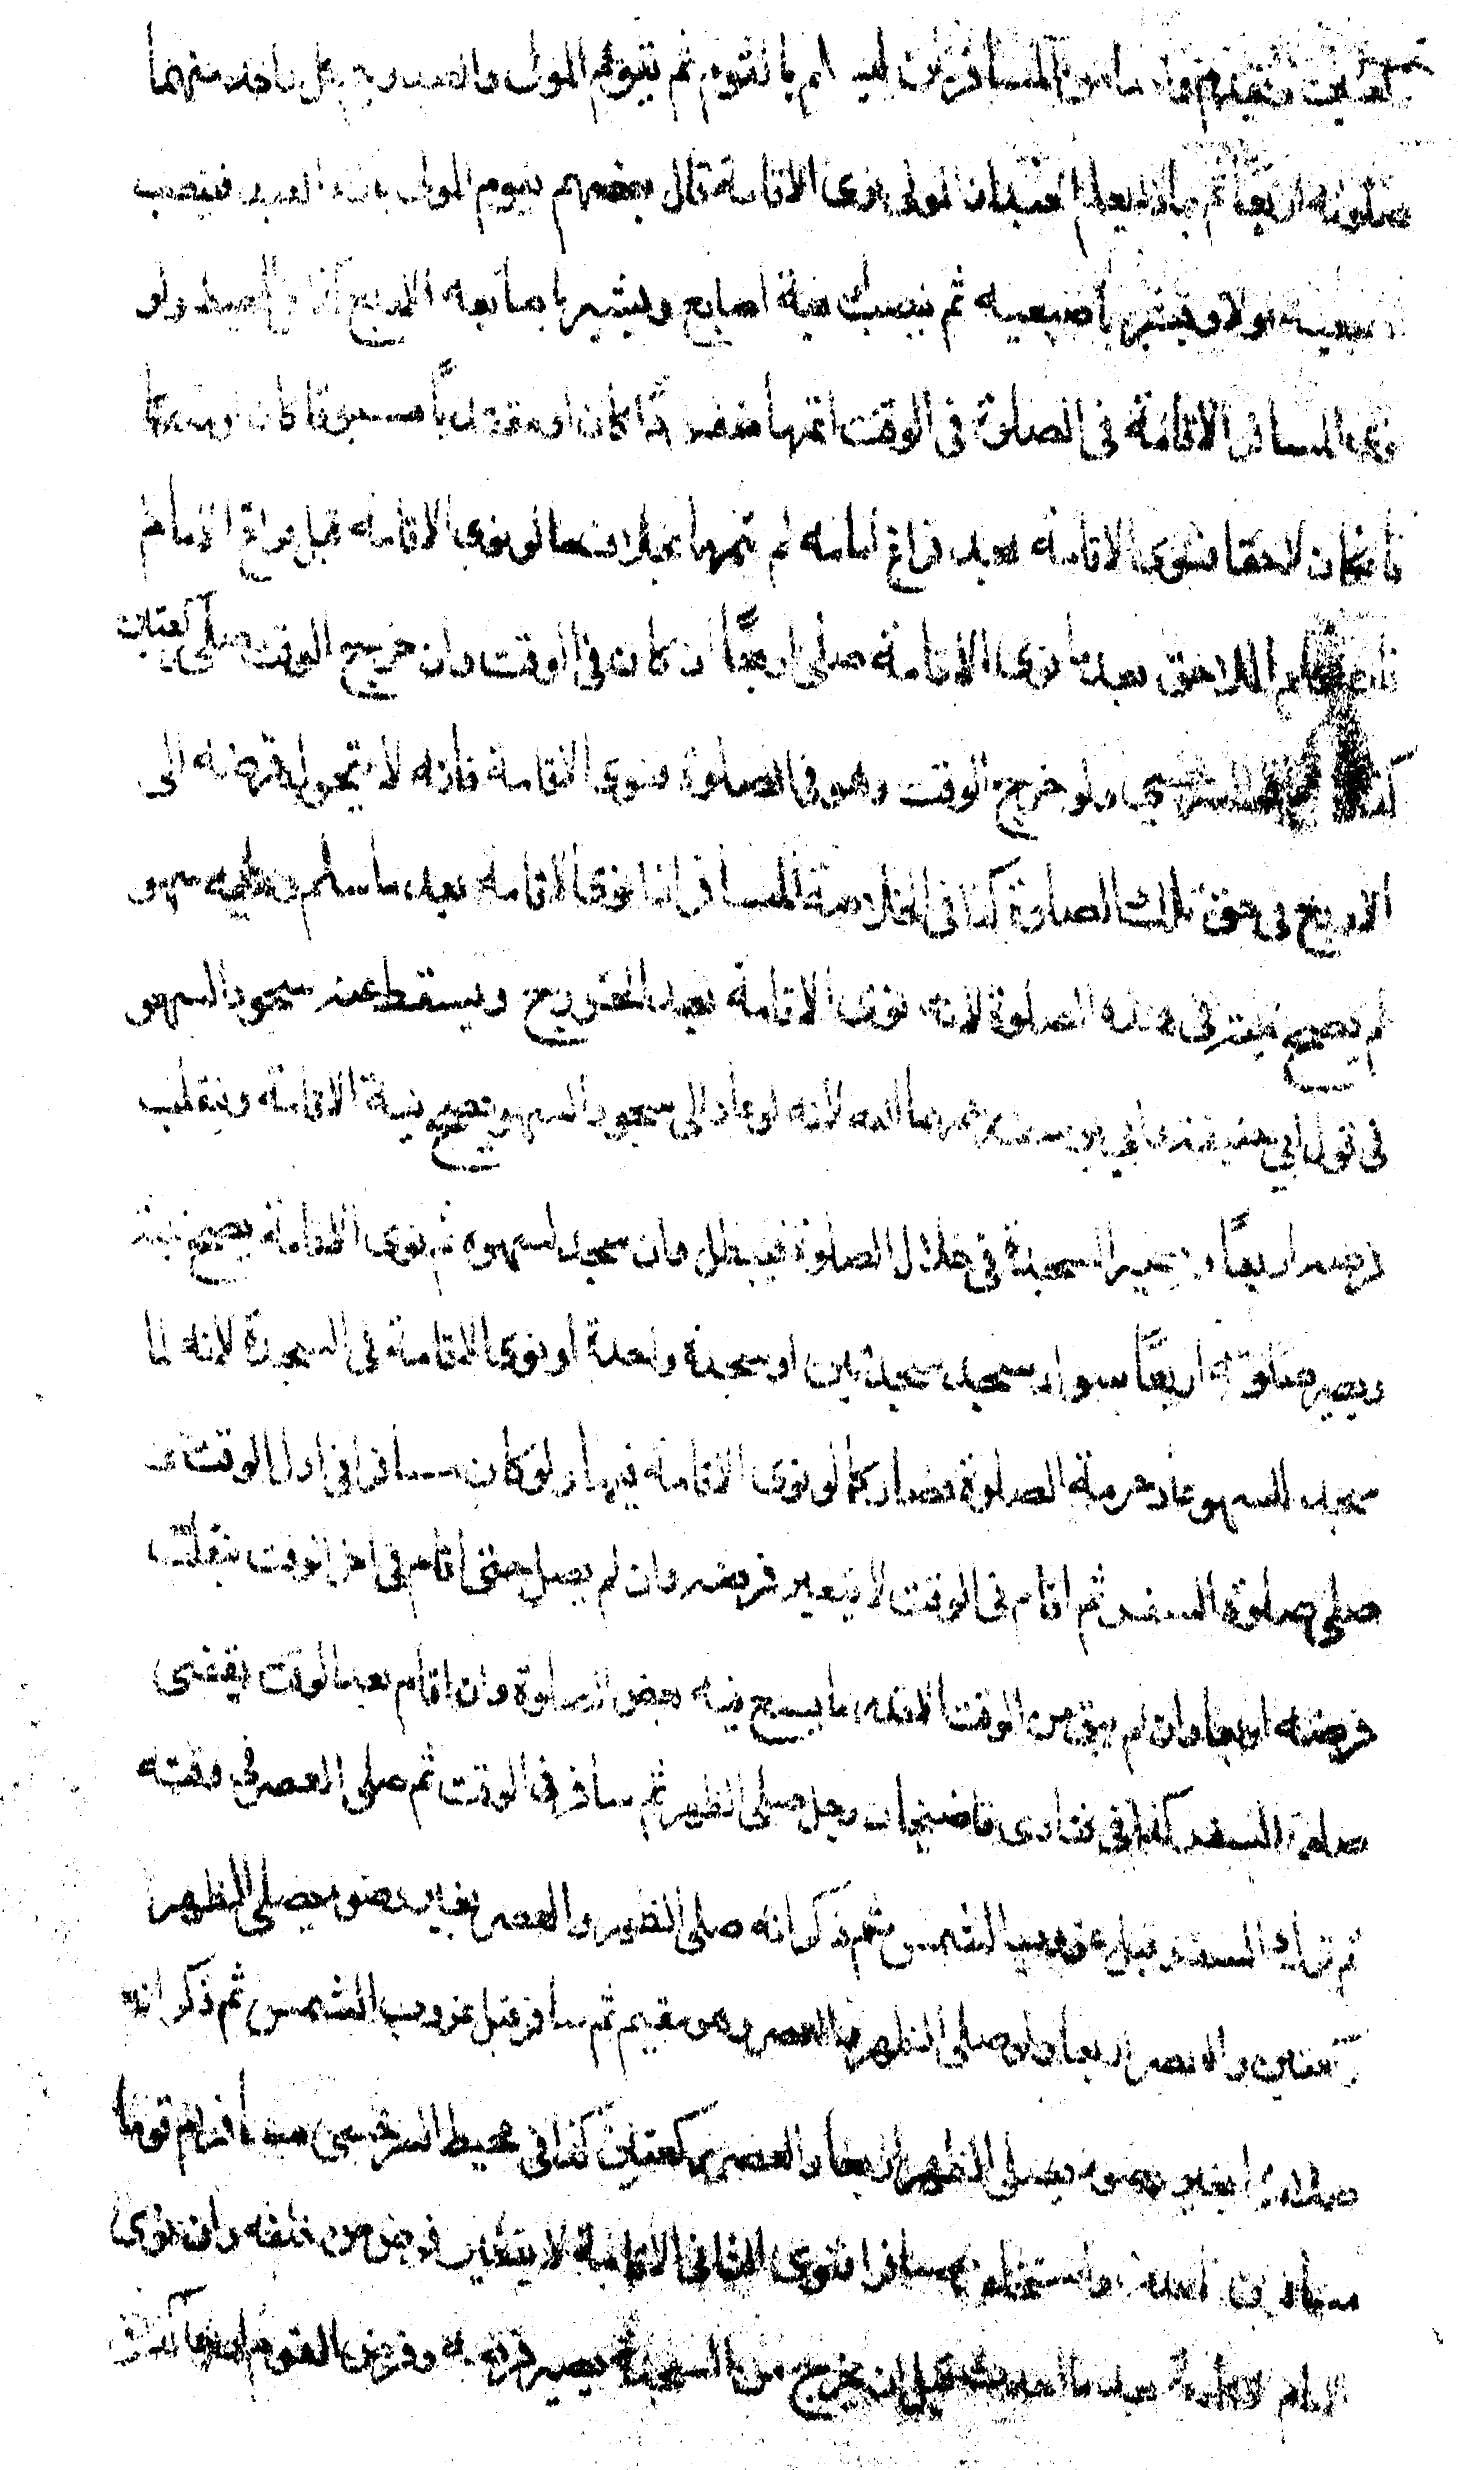 ركعتين ويقدم واحدا من المسافرين ليسلم بالقوم ثم يقوم المولى والعبد ويتم كل واحد منهما
صلوته اربعا ثم بماذا يعلم العبد ان المولى نوى الاقامة قال بعضهم يقوم المولى بازاء العبد فينصب
اصبعيه اولا ويشير باصبعيه ثم ينصب اربعة اصابع ويشير باصابعه الاربع كذا في المحيط ولو
نوى المسافر الاقامة في الصلوة في الوقت اتمها منفردًا كان او مقتديًا مسبوقا كان او مدركا
فان كان لاحقا فنوى الاقامة بعد فراغ امامه لم يتمها بخلاف ما لو نوى الاقامة قبل فراغ الامام
تكلم اللاحق بعد ما نوى الاقامة صلى اربعًا ان كان في الوقت وان خرج الوقت صلى ركعتين
كذا السرخسي ولو خرج الوقت وهو في الصلوة فنوى الاقامة فانه لا يتحول فرضه الى
الاربع في حق تلك الصلوة كذا في الخلاصة المسافر اذا نوى الاقامة بعد ما سلم وعليه سهو
لم يصح نيته في هذه الصلوة لانه نوى الاقامة بعد الخروج ويسقط عنه سجود السهو
في قول ابي حنيفة وابي يوسف رحمهما الله لانه لو عاد الى سجود السهو يصح نية الاقامة وينقلب
فرضه اربعًا ويصير السجدة في خلال الصلوة فيبطل وان سجد لسهوه ثم نوى الاقامة يصح نيته
ويصير صلوته اربعًا سواء سجد سجدتين او سجدة واحدة او نوى الاقامة في السجدة لانه لما
سجد للسهو عاد حرمة الصلوة فصار كما لو نوى الاقامة فيها ولو كان مسافرا في اول الوقت
صلى صلوة السفر ثم اقام في الوقت لا يتغير فرضه وان لم يصل حتى اقام في اخر الوقت ينقلب
فرضه اربعا وان لم يبق من الوقت الا قدر ما يسع فيه بعض الصلوة وان اقام بعد الوقت يقضي
صلوة السفر كذا في فتاوى قاضيخان رجل صلى الظهر ثم سافر في الوقت ثم صلى العصر في وقته
ثم ترك السفر قبل غروب الشمس ثم ذكر انه صلى الظهر والعصر بغير وضوء يصلي الظهر
ركعتين والعصر اربعا ولو صلى الظهر والعصر وهو مقيم ثم سافر قبل غروب الشمس ثم ذكر انه
صلاهما بغير وضوء يصلي الظهر اربعا والعصر ركعتين كذا في محيط السرخسي مسافر ام قوما
مسافرين فاحدث واستخلف مسافرا فنوى الثاني الاقامة لا يتغير فرض من خلفه وان نوى
الامام الاقامة بعد ما احدث قبل ان يخرج من المسجد يصير فرضه وفرض القوم اربعا كذا في